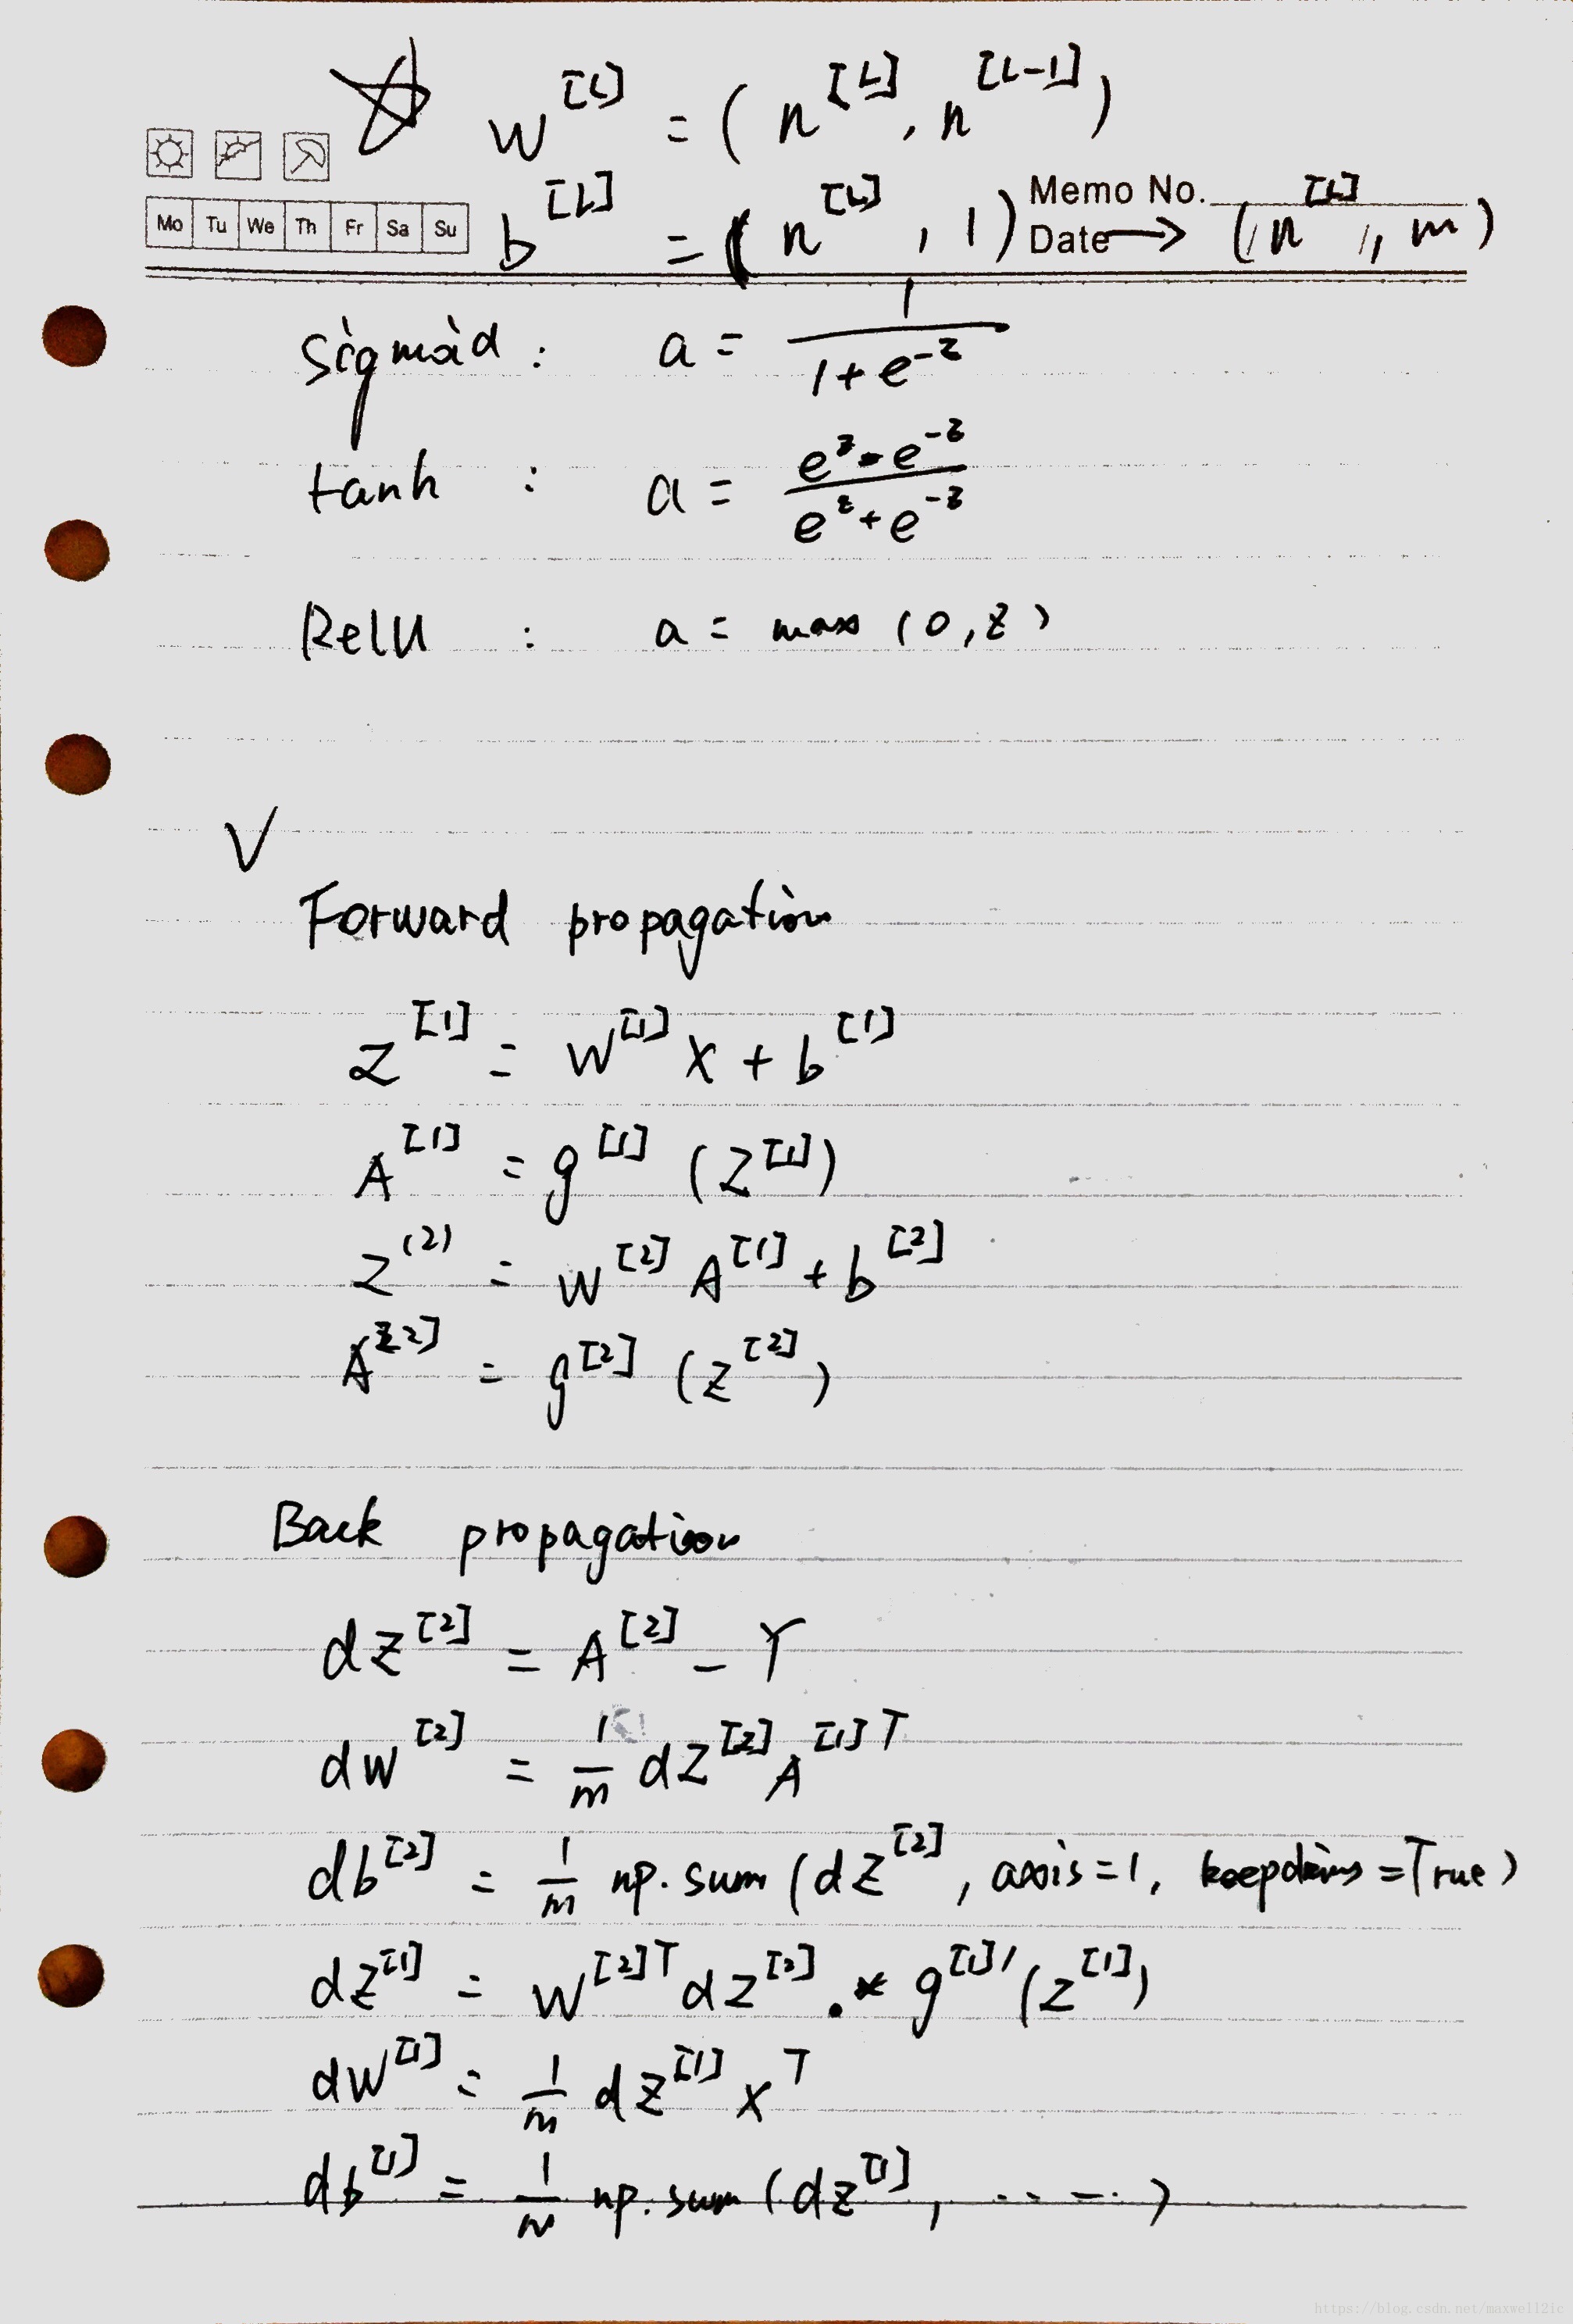 ☆ W^[L] = (n^[L], n^[L-1])
Mo Tu We Th Fr Sa Su
b^[L] = (n^[L], 1) → (n^[L], m)
Memo No.
Date
Sigmoid : a = 1/(1+e^-z)
tanh : a = (e^z - e^-z)/(e^z + e^-z)
RelU : a = max (0, z)
√
Forward propagation
Z^[1] = W^[1] X + b^[1]
A^[1] = g^[1] (Z^[1])
Z^(2) = W^[2] A^[1] + b^[2]
A^[2] = g^[2] (Z^[2])
Back propagation
dZ^[2] = A^[2] - Y
dW^[2] = 1/m dZ^[2] A^[1]T
db^[2] = 1/m np.sum (dZ^[2], axis=1, keepdims=True)
dZ^[1] = W^[2]T dZ^[2] .* g^[1]' (Z^[1])
dW^[1] = 1/m dZ^[1] X^T
db^[1] = 1/m np.sum (dZ^[1], ......)
https://blog.csdn.net/maxwell2ic